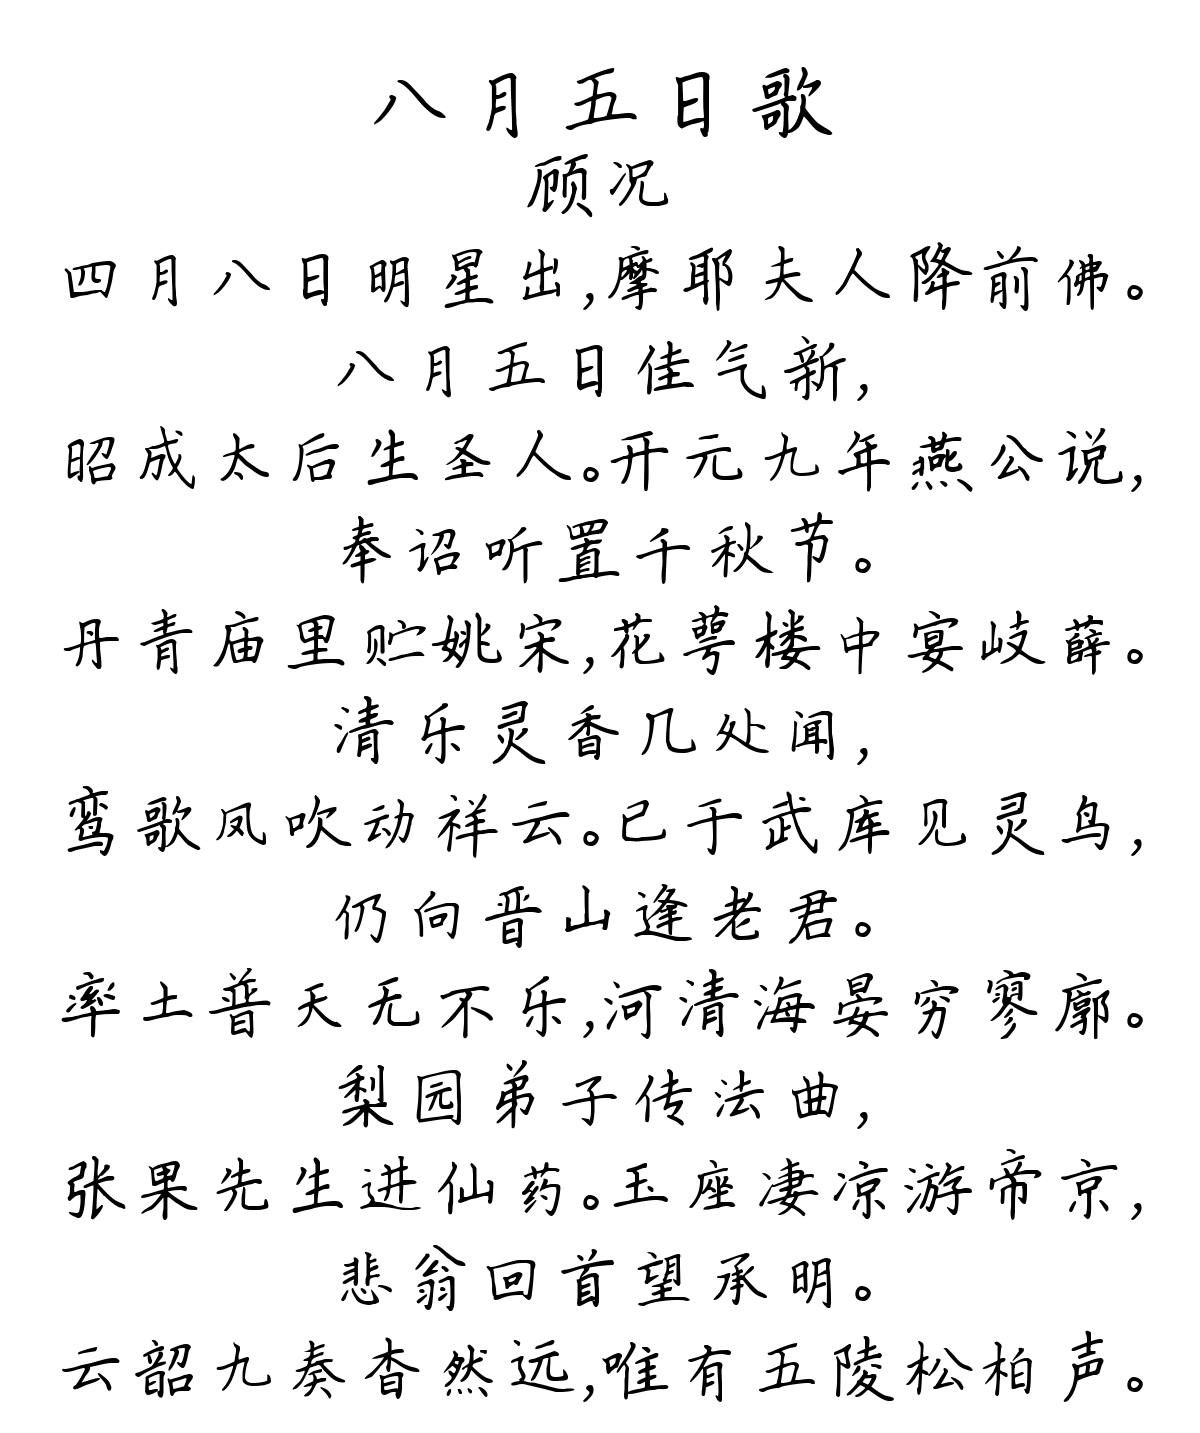 八月五日歌
顾况
四月八日明星出,摩耶夫人降前佛。
八月五日佳气新,
昭成太后生圣人。开元九年燕公说,
奉诏听置千秋节。
丹青庙里贮姚宋,花萼楼中宴岐薛。
清乐灵香几处闻,
鸾歌凤吹动祥云。已于武库见灵鸟,
仍向晋山逢老君。
率土普天无不乐,河清海晏穷寥廓。
梨园弟子传法曲,
张果先生进仙药。玉座凄凉游帝京,
悲翁回首望承明。
云韶九奏杳然远,唯有五陵松柏声。